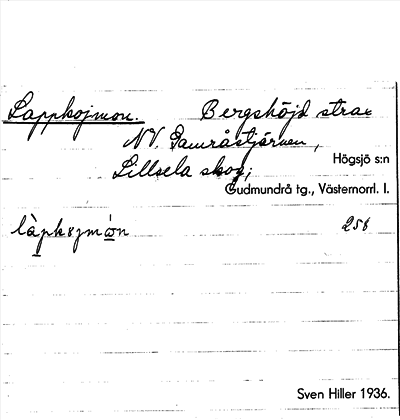 Lappkojmon. Bergshöjd strax
NV. Gamråstjärnen,
Högsjö s:n
Lillsela skog;
Gudmundrå tg., Västernorrl. l.
258
Sven Hiller 1936.